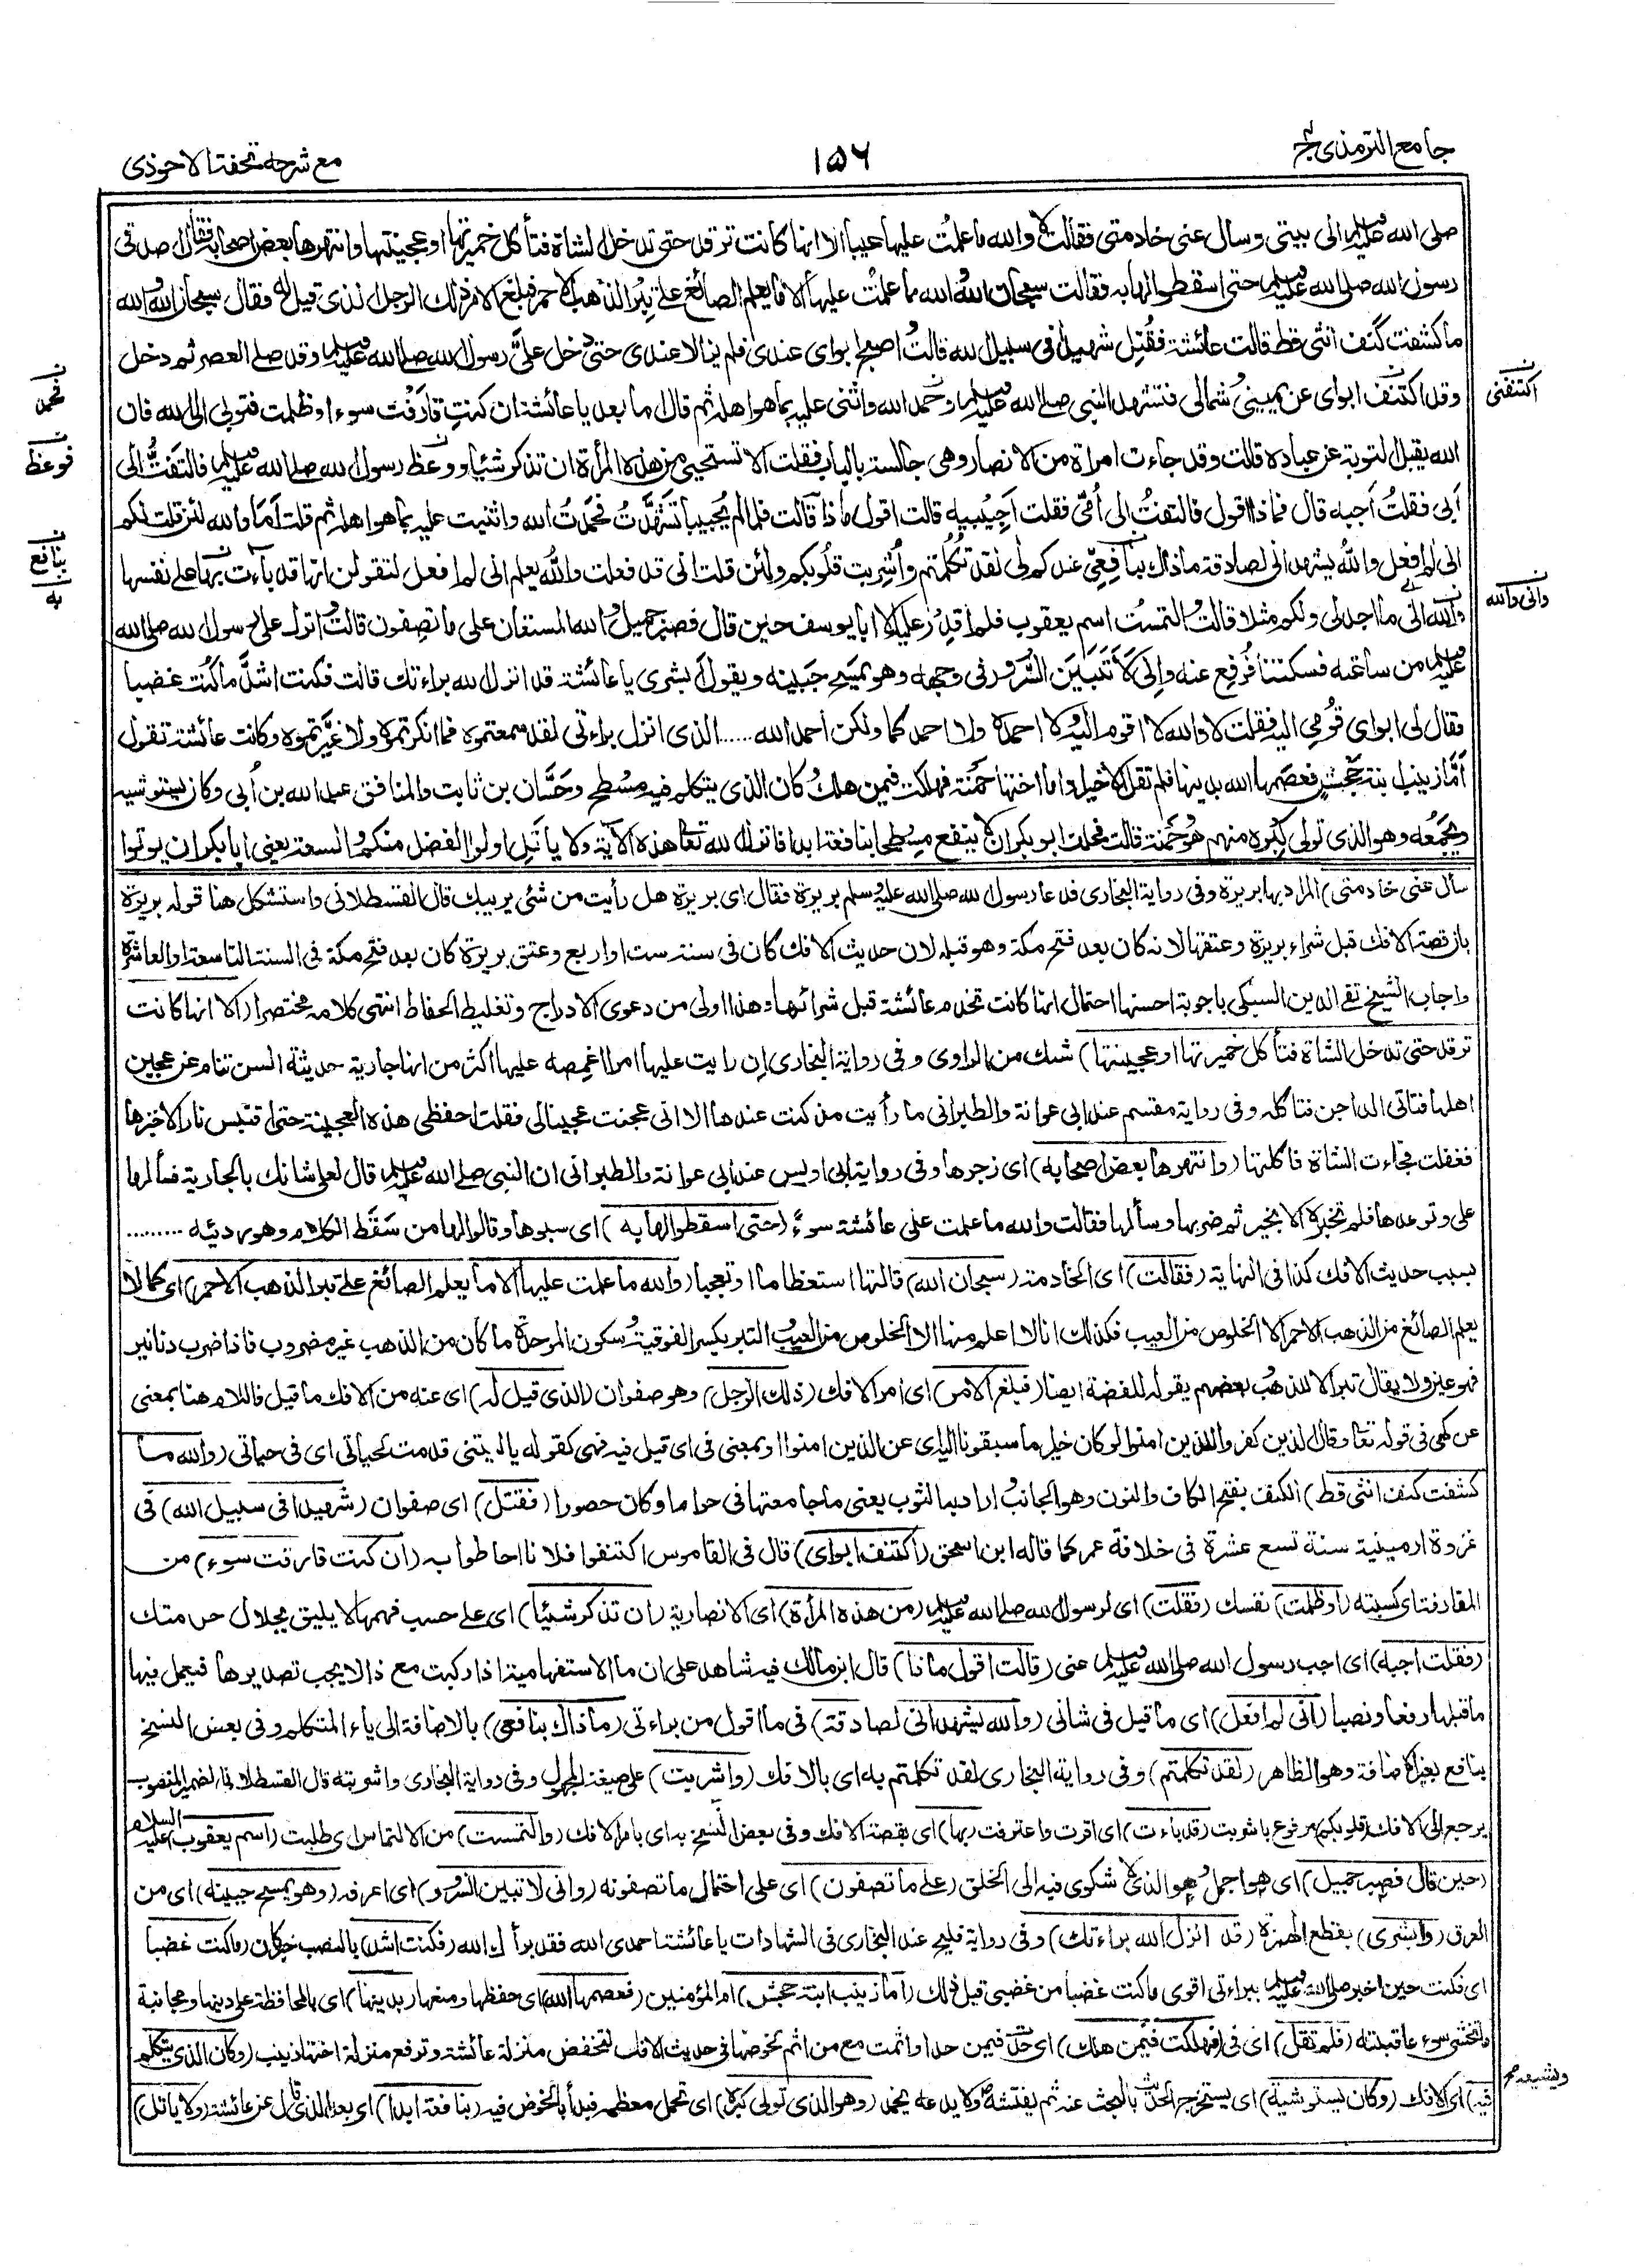 جامع الترمذی ج۴
۱۵۶
مع شرحه تحفة الاحوذی
صلى الله عليه وسلم الى بيتى وسأل عنى خادمتى فقالت لا والله ما علمت عليها عيبا الا انها كانت ترقد حتى تدخل الشاة فتأكل خميرتها او عجينتها وانتهرها بعض اصحابه فقال اصدقى
رسول الله صلى الله عليه وسلم حتى اسقطوا لها به فقالت سبحان الله والله ما علمت عليها الا ما يعلم الصائغ على تبر الذهب الاحمر فبلغ الامر ذلك الرجل الذى قيل له فقال سبحان الله والله
ما كشفت كنف انثى قط قالت عائشة فقتل شهيدا فى سبيل الله قالت اصبح ابواى عندى فلم يزالا عندى حتى دخل على رسول الله صلى الله عليه وسلم وقد صلى العصر ثم دخل
وقد اكتنف ابواى عن يمينى وشمالى فتشهد النبى صلى الله عليه وسلم وحمد الله واثنى عليه بما هو اهله ثم قال اما بعد يا عائشة ان كنت قارفت سوءا او ظلمت فتوبى الى الله فان
الله يقبل التوبة عن عباده قالت وقد جاءت امراة من الانصار وهى جالسة بالباب فقلت الا تستحيى من هذه المرأة ان تذكر شيئا ووعظ رسول الله صلى الله عليه وسلم فالتفت الى
ابى فقلت اجبه قال فماذا اقول فالتفت الى أمى فقلت اجيبيه قالت اقول ماذا قالت فلما لم يجيبا تشهدت فحمدت الله واثنيت عليه بما هو اهله ثم قلت أما والله لئن قلت لكم
انى لم افعل والله يشهد انى لصادقة ما ذاك بنافعى عندكم لى لقد تكلمتم وأشربت قلوبكم ولئن قلت انى قد فعلت والله يعلم انى لم افعل لتقولن انها قد باءت بها على نفسها
والله انى ما اجد لى ولكم مثلا قالت والتمست اسم يعقوب فلم اقدر عليه الا ابا يوسف حين قال فصبر جميل والله المستعان على ما تصفون قالت وانزل على رسول الله صلى الله
عليه وسلم من ساعته فسكتنا فرفع عنه وانى لاتبين السرور فى وجهه وهو يمسح جبينه ويقول ابشرى يا عائشة قد انزل الله براءتك قالت فكنت اشد ما كنت غضبا
فقال لى ابواى قومى اليه فقلت لا والله لا اقوم اليه ولا احمده ولا احمدكما ولكن أحمد الله ..... الذى انزل براءتى لقد سمعتموه فما انكرتموه ولا غيرتموه وكانت عائشة تقول
أما زينب بنة جحش فعصمها الله بدينها فلم تقل الا خيرا واما اختها حمنة فهلكت فيمن هلك وكان الذى يتكلم فيه مسطح وحسان بن ثابت والمنافق عبد الله بن أبى وكان يستوشيه
ويجمعه وهو الذى تولى كبره منهم هو وحمنة قالت فحلف ابو بكر ان لا ينفع مسطحا بنافعة ابدا فانزل الله تعالى هذه الآية ولا يأتل اولوا الفضل منكم والسعة يعنى ابا بكر ان يوتوا
سأل عنى خادمتى) المراد بها بريرة وفى رواية البخارى فدعا رسول الله صلى الله عليه وسلم بريرة فقال اى بريرة هل رأيت من شئ يريبك قال القسطلانى واستشكل هنا قوله بريرة
بان قصة الافك قبل شراء بريرة وعتقها لانه كان بعد فتح مكة وهو قبله لان حديث الافك كان فى سنة ست او اربع وعتق بريرة كان بعد فتح مكة فى السنة التاسعة او العاشرة
واجاب الشيخ تقى الدين السبكى باجوبة احسنها احتمال انها كانت تخدم عائشة قبل شرائها وهذا اولى من دعوى الادراج وتغليط الحفاظ انتهى كلامه مختصرا (الا انها كانت
ترقد حتى تدخل الشاة فتأكل خميرتها او عجينتها) شك من الراوى وفى رواية البخارى ان رايت عليها امرا اغمصه عليها اكثر من انها جارية حديثة السن تنام عن عجين
اهلها فتاتى الداجن فتاكله وفى رواية مقسم عند ابى عوانة والطبرانى ما رأيت مذ كنت عندها الا انى عجنت عجينا لى فقلت احفظى هذه العجينة حتى اقتبس نارا لاخبزها
فغفلت فجاءت الشاة فاكلتها (وانتهرها بعض اصحابه) اى زجرها وفى رواية ابى اويس عند ابى عوانة والطبرانى ان النبى صلى الله عليه وسلم قال لعلى شانك بالجارية فسألها
على وتوعدها فلم تخبره الا بخير ثم ضربها وسألها فقالت والله ما علمت على عائشة سوءً (حتى اسقطوا لها به) اى سبوها وقالوا لها من سَقَط الكلام وهو رديئه .........
بسبب حديث الافك كذا فى النهاية (فقالت) اى الخادمة (سبحان الله) قالتها استعظاما او تعجبا (والله ما علمت عليها الا ما يعلم الصائغ على تبر الذهب الاحمر) اى كما لا
يعلم الصائغ من الذهب الاحمر الا الخلوص من العيب فكذلك انا لا اعلم منها الا الخلوص من العيب والتبر بكسر الفوقية وسكون الموحدة ما كان من الذهب غير مضروب فاذا ضرب دنانير
فهو عين ولا يقال تبر الا للذهب وبعضهم يقوله للفضة ايضا (فبلغ الامر) اى امر الافك (ذلك الرجل) وهو صفوان (الذى قيل له) اى عنه من الافك ما قيل فاللام هنا بمعنى
عن كهى فى قوله تعالى وقال الذين كفروا للذين امنوا لو كان خيرا ما سبقونا اليه اى عن الذين امنوا او بمعنى فى اى قيل فيه فهى كقوله يا ليتنى قدمت لحياتى اى فى حياتى (والله ما
كشفت كنف انثى قط) الكنف بفتح الكاف والنون وهو الجانب اراد بها الثوب يعنى ما جامعتها فى حرام وكان حصورا (فقتل) اى صفوان (شهيدا فى سبيل الله) فى
غزوة ارمينية سنة تسع عشرة فى خلافة عمر كما قاله ابن اسحق (اكتنف ابواى) قال فى القاموس اكتنفوا فلانا احاطوا به (ان كنت قارفت سوء) من
المقارفة اى كسبته (او ظلمت) نفسك (فقلت) اى لرسول الله صلى الله عليه وسلم (من هذه المرأة) اى الانصارية (ان تذكر شيئا) اى على حسب فهمها لا يليق بجلال حرمتك
(فقلت اجبه) اى اجب رسول الله صلى الله عليه وسلم عنى (قالت اقول ماذا) قال ابن مالك فيه شاهد على ان ما الاستفهامية اذا ركبت مع ذا لا يجب تصديرها فيعمل فيها
ما قبلها رفعا ونصبا (انى لم افعل) اى ما قيل فى شانى (والله يشهد انى لصادقة) فى ما اقول من براءتى (ما ذاك بنافعى) بالاضافة الى ياء المتكلم وفى بعض النسخ
بنافع بغير الاضافة وهو الظاهر (لقد تكلمتم) وفى رواية البخارى لقد تكلمتم به اى بالافك (واشربت) على صيغة المجهول وفى رواية البخارى واشربته قال القسطلانى الضمير المنصوب
يرجع الى الافك (قلوبكم) مرفوع باشربت (قد باءت) اى اقرت واعترفت (بها) اى بقصة الافك وفى بعض النسخ به اى بامر الافك (والتمست) من الالتماس اى طلبت (اسم يعقوب) عليه السلام
(حين قال فصبر جميل) اى هو اجمل وهو الذى لا شكوى فيه الى الخلق (على ما تصفون) اى على احتمال ما تصفونه (وانى لاتبين السرور) اى اعرفه (وهو يمسح جبينه) اى من
العرق (وابشرى) بقطع الهمزة (قد انزل الله براءتك) وفى رواية فليح عند البخارى فى الشهادات يا عائشة احمدى الله فقد برأك الله (فكنت اشد) بالنصب خبر كان (ما كنت غضبا
اى فكنت حين اخبر صلى الله عليه وسلم ببراءتى اقوى ما كنت غضبا من غضبى قبل ذلك (اما زينب ابنة جحش) ام المؤمنين (فعصمها الله) اى حفظها ومنعها (بدينها) اى بالمحافظة على دينها ومجانبة
ما تخشى سوء عاقبته (فلم تقل) اى فى (فهلكت فيمن هلك) اى حد فيمن حد او اثمت مع من اثم لخوضها فى حديث الافك لتخفض منزلة عائشة وترفع منزلة اختها زينب (وكان الذى يتكلم
فيه) اى الافك (وكان يستوشيه) اى يستخرج الحديث بالبحث عنه ثم يفتشه ولا يدعه يخمد (وهو الذى تولى كبره) اى تحمل معظمه فبدأ بالخوض فيه (بنافعة ابدا) اى بعد الذى قال عن عائشة (ولا ياتل)
اكتنفنى
وانى والله
ويشيعه
فحمد
فوعظ
بنافع
به